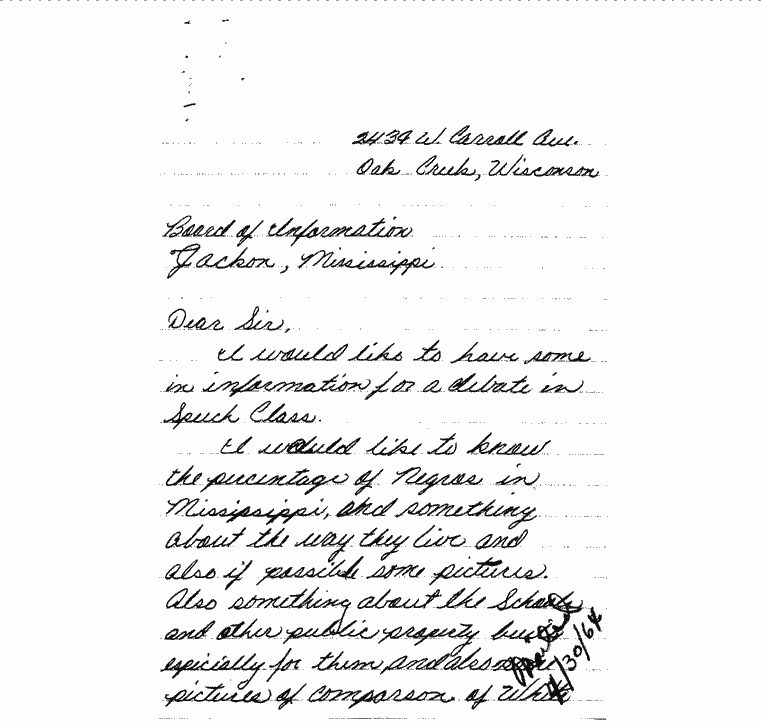 2439 W. Carroll Ave.
Oak Creek, Wisconson
Board of Information
Jackon, Mississippi
Dear Sir,
I would like to have some
in information for a debate in
Speech Class.
I would like to know
the percentage of Negros in
Mississippi, and something
about the way they live and
also if possible some pictures.
Also something about the Schools
and other public property built
espicially for them, and also some
pictures of comparson of White
Mailed
/30/64